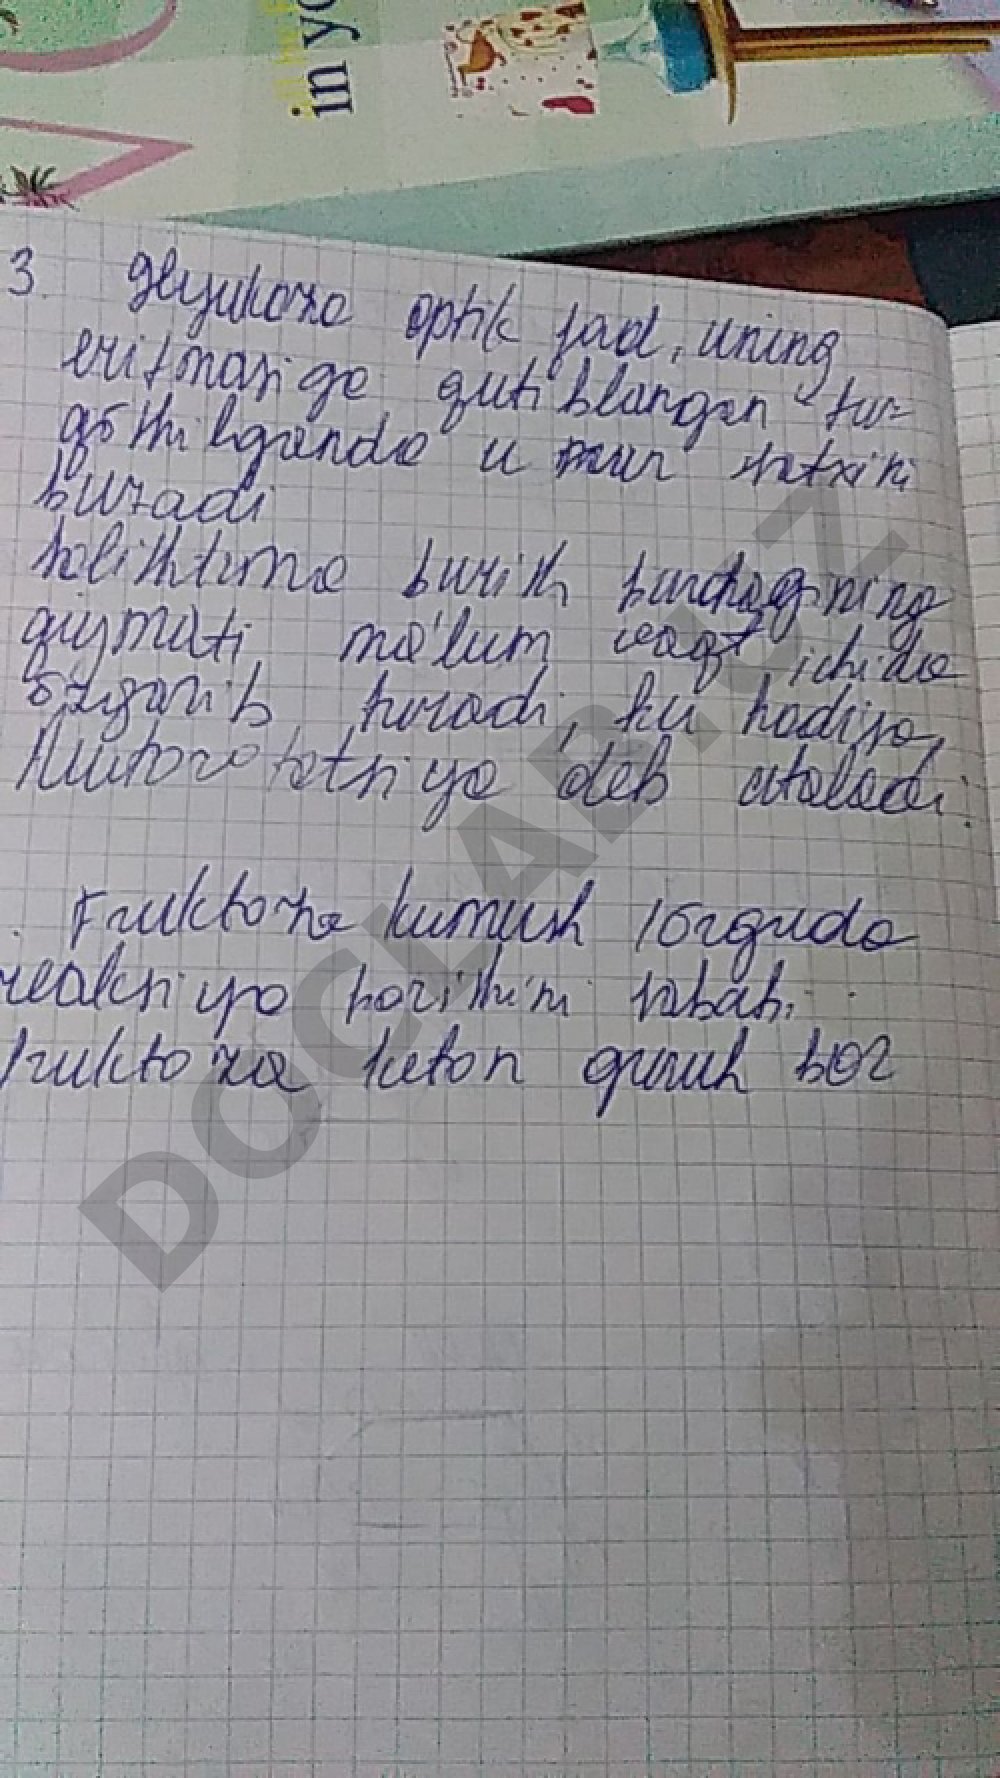 in yo
3. glyukoza optik faol, uning
eritmasiga qutiblangan nur
o'tkilganda u nur satxini
buradi
solishtirma burish burchagining
qiymati ma'lum vaqt ichida
özgarib boradi, bu hodisa
Mutorotatsiya deb ataladi.
Fruktoza kumush
reaksiya sababi
fruktoza keton guruh bor
DOCLAB.UZ